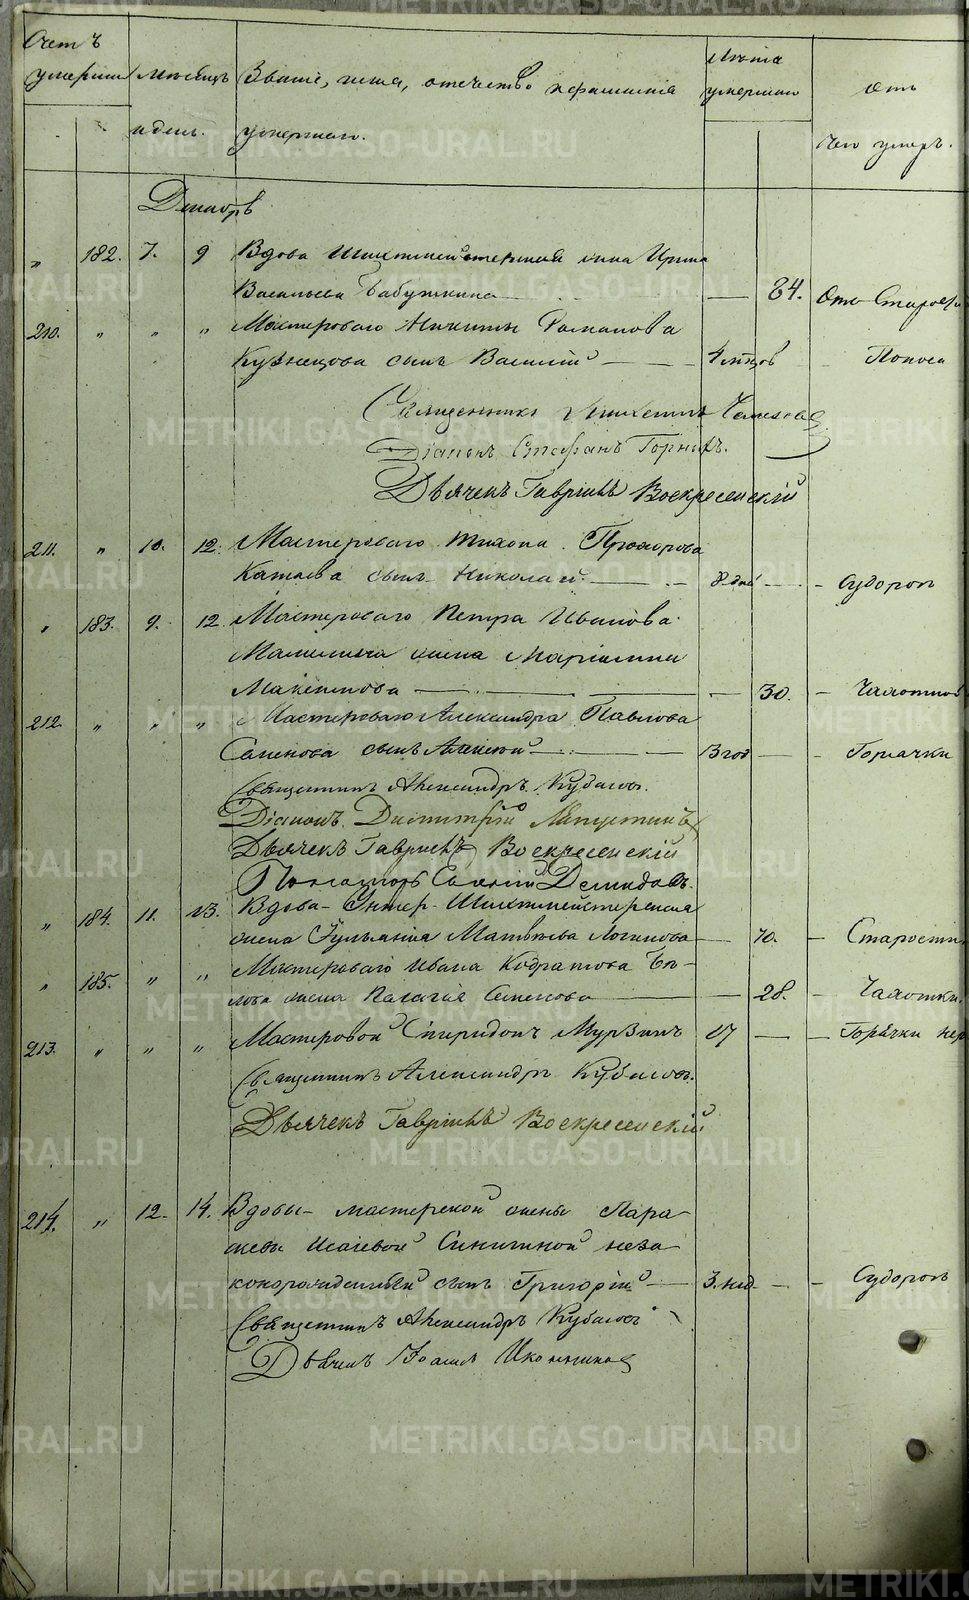 Счетъ умершихъ Мѣсяцъ и день. Званіе, имя, отечество и фамилія умершаго. Лѣта умершаго Отъ чего умеръ.
Декабрь
" 182. 7. 9 Вдова Шихтмейстерская жена Ирина
Васильева Бабушкина — 84. Отъ Старости
210. " " " Мастероваго Никиты Романова
Кузнецова сынъ Василій — 4 мѣсцов Поноса
Священникъ Чемезовъ
Діаконъ Стефанъ Горныхъ.
Дьячекъ Гавріилъ Воскресенскій
211. " 10. 12. Мастероваго Тихона Прохорова
Катаева сынъ Николай — 8 дней — Судорогъ
" 183. 9. 12 Мастероваго Петра Иванова
жена
— 30. — Чахотки
212. " " " Мастероваго Александра Павлова
Семенова сынъ Алексѣй — 13 год — Горячки
Священникъ Александръ Кубасовъ.
Діаконъ Димитрій Ляпустинъ
Дьячекъ Гавріилъ Воскресенскій
Пономарь Евгеній Демидовъ.
" 184. 11. 13. Вдова Унтер-Шихтмейстерская
жена Ульянія Матвѣева Логинова — 70. — Старости
" 185. " " Мастероваго Ивана Кодратова Бѣ-
лова жена Палагія Семенова — 28. — Чахотки.
213. " " " Мастеровой Спиридонъ Мурзинъ 17 — Горячки нер
Священникъ Александръ Кубасовъ.
Дьячекъ Гавріилъ Воскресенскій
214. " 12. 14. Вдовы мастерской жены Пара-
сковьи Исаевой Синициной неза
коннорожденный сынъ Григорій — 3. нед. — Судорогъ
Священникъ Александръ Кубасовъ
Дьячекъ Іоаннъ Иконниковъ
METRIKI.GASO-URAL.RU